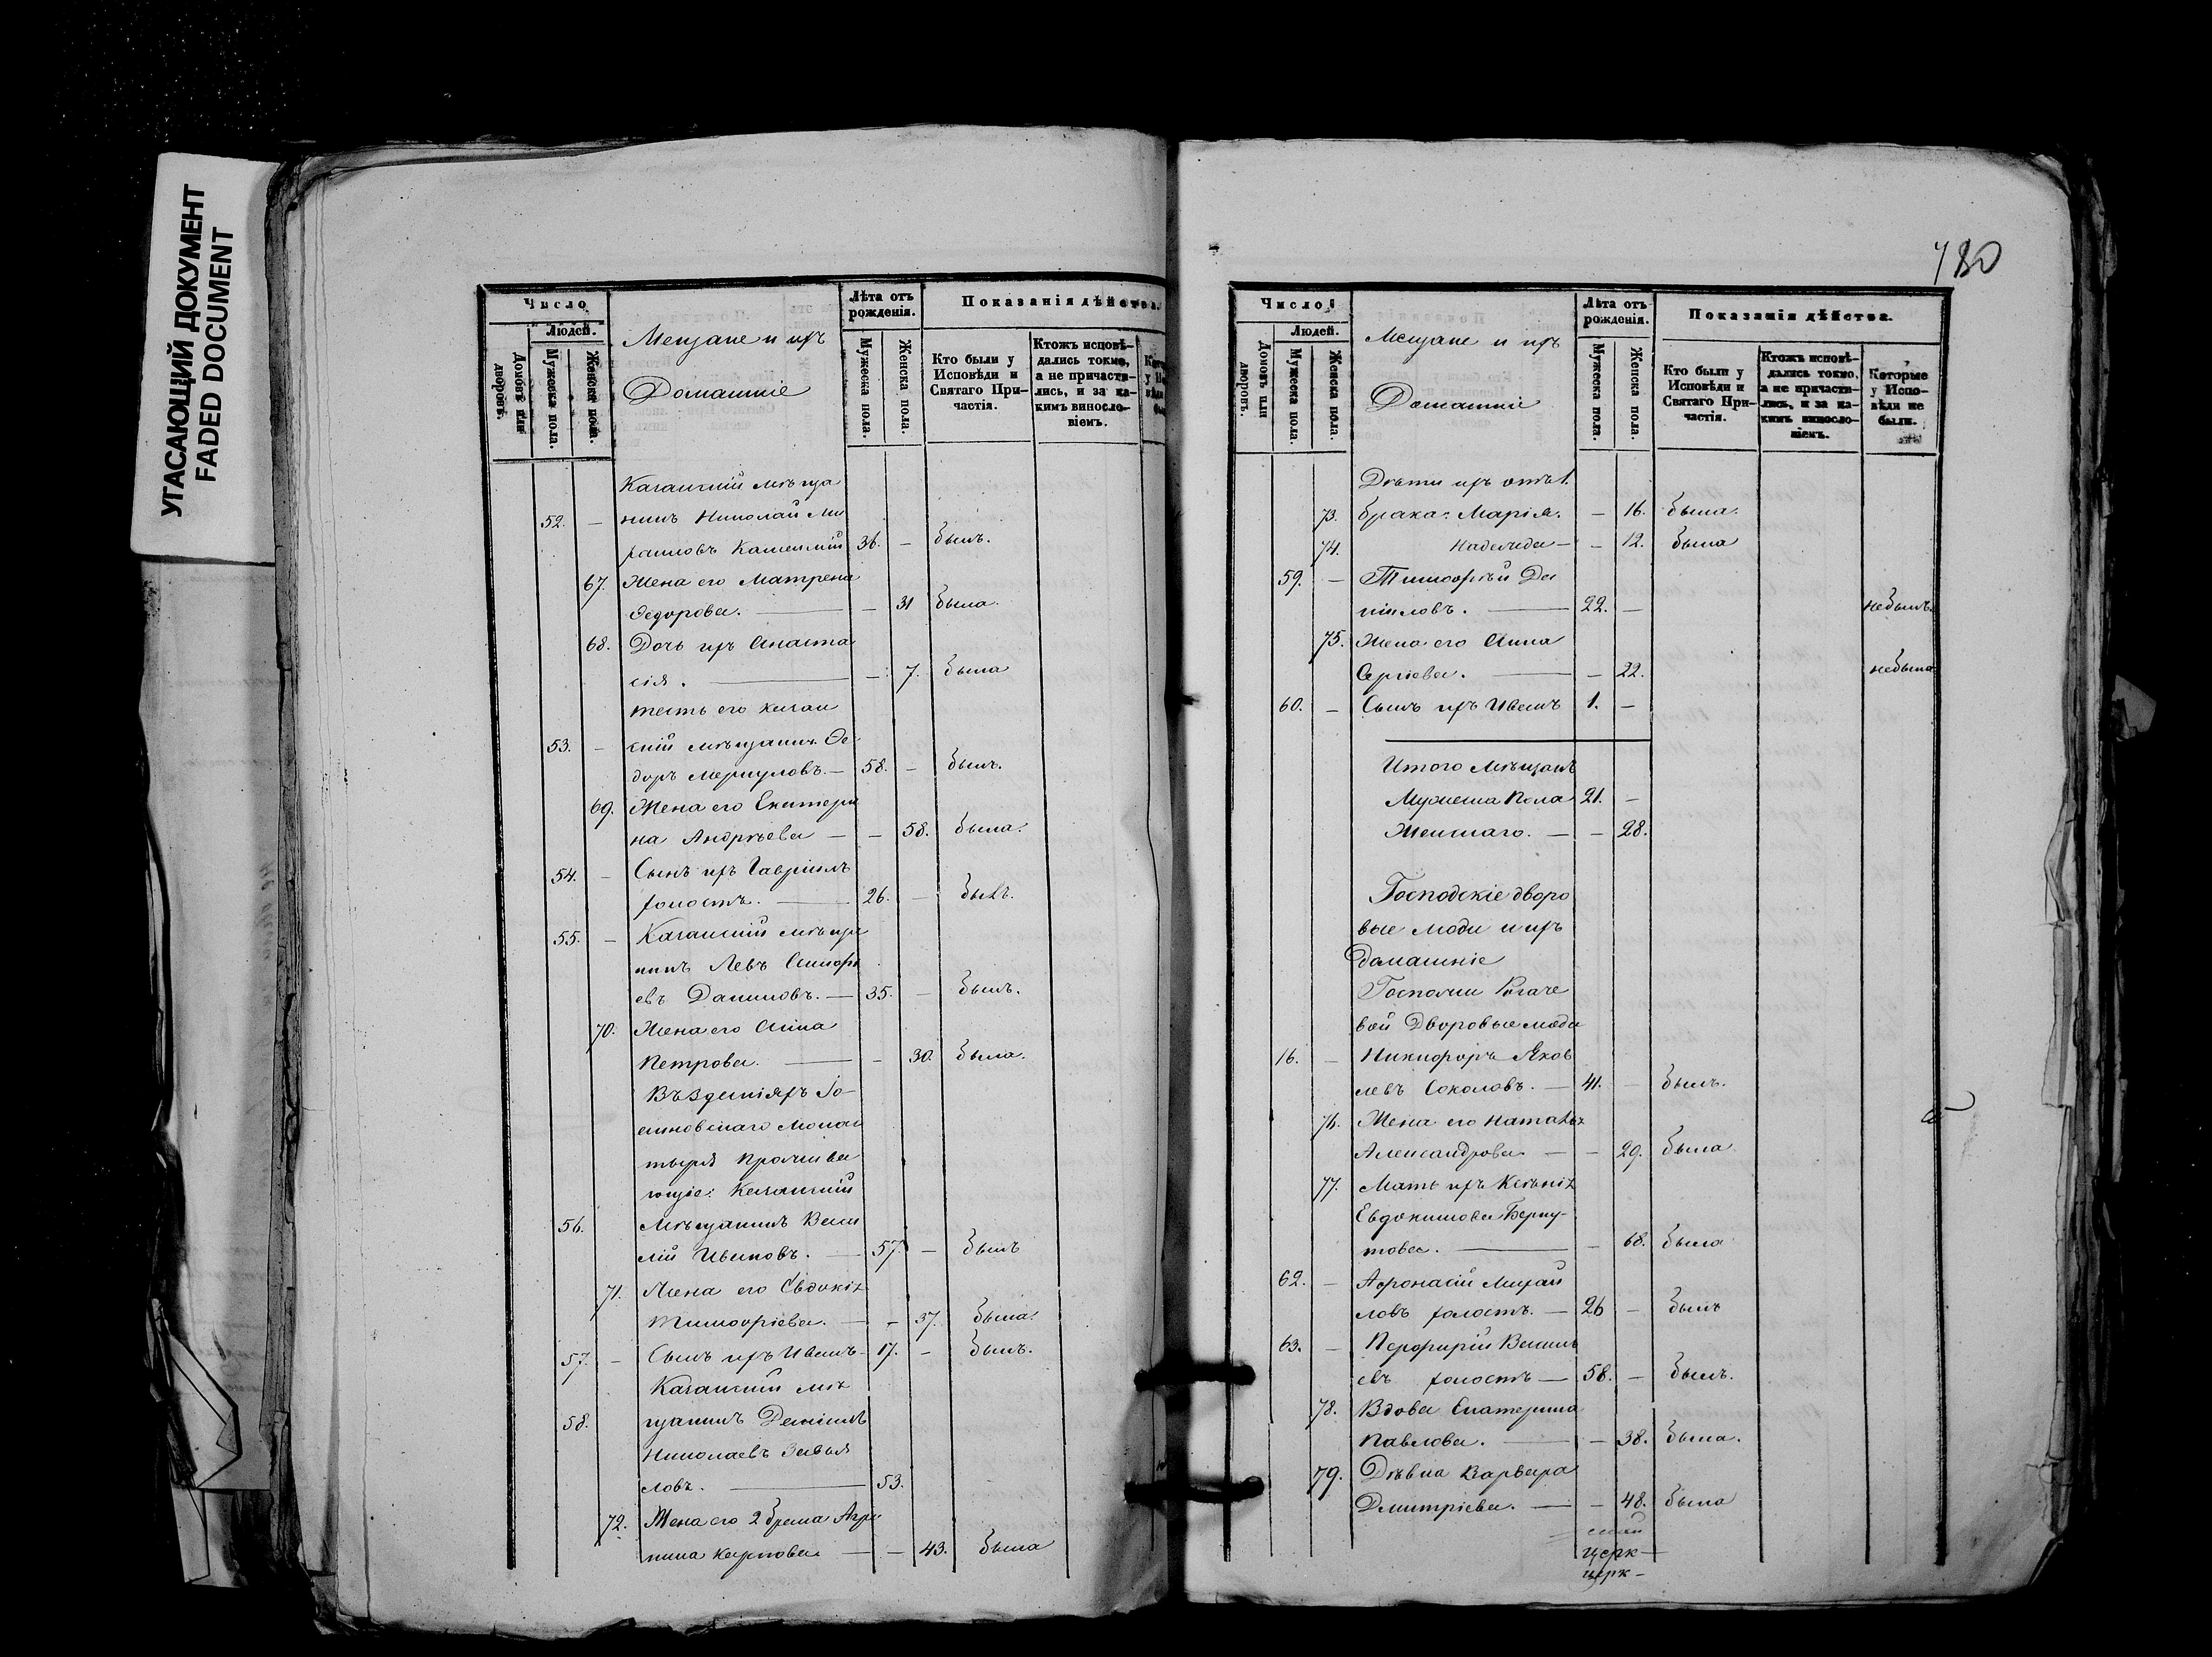 УГАСАЮЩИЙ ДОКУМЕНТ
FADED DOCUMENT
Число
Людей.
Домовъ или дворовъ.
Мужеска пола.
Женска пола.
Мещане и ихъ
Домашніе
Лѣта отъ рожденія.
Мужеска пола.
Женска пола.
Показанія дѣйства.
Кто были у Исповѣди и Святаго Причастія.
Ктожъ исповѣдались токмо, а не причастились, и за какимъ винословіемъ.
Казанскій мѣща
52. — нинъ Николай Ми
хаиловъ Каменскій 36. — былъ.
67. Жена его Матрена
Ѳедорова. — — 31 была.
68. Дочь ихъ Анаста
сія. — — 7. была
тесть его казан
53. — скій мѣщанинъ Ѳе
доръ Меркуловъ. — 58. — былъ.
69. Жена его Екатери
на Андрѣева — — 58. была.
54. — Сынъ ихъ Гавріилъ
холостъ. — 26. — былъ.
55. — Казанскій мѣща
нинъ Левъ
евъ Даниловъ. — 35. — былъ.
70. Жена его Анна
Петрова. — — 30. была.
Въ зданіяхъ Іо-
анновскаго Монас
тыря прожива
ющіе: Казанскій
56. Мѣщанинъ Васи
лій Ивановъ. — 57. — былъ
71. Жена его Евдокія
Тимоѳіева. — — 37. была.
57. — Сынъ ихъ Иванъ — 17. — былъ.
Казанскій мѣ
58. щанинъ Даніилъ
Николаевъ Завья
ловъ. — 53.
72. Жена его 2 брака Агри
пина Карпова — — 43. была
180
Число
Людей.
Домовъ или дворовъ.
Мужеска пола.
Женска пола.
Мещане и ихъ
Домашніе
Лѣта отъ рожденія.
Мужеска пола.
Женска пола.
Показанія дѣйства.
Кто были у Исповѣди и Святаго Причастія.
Ктожъ исповѣдались токмо, а не причастились, и за какимъ винословіемъ.
Которые у Исповѣди не были.
Дѣти ихъ отъ 1.
73. брака: Марія. — 16. была.
74. Надежда — — 12. была
59. — Тимоѳѣй Да
ніиловъ. — 22. — небылъ.
75. Жена его Анна
Сергіева. — — 22. небыла
60. — Сынъ ихъ Иванъ 1. —
Итого мѣщанъ
Мужеска Пола 21. —
Женскаго. — — 28.
Господскіе дворо
вые люди и ихъ
домашніе
Госпожи Рогаче
вой Дворовые люди
16. — Никифоръ Яков
левъ Соколовъ. — 41. — былъ.
76. Жена его Наталья
Александрова — — 29. была
77. Мать ихъ Ксенія
Евдокимова Берку-
това. — — 68. была
62. — Афонасій Михай
ловъ холостъ. — 26 — былъ
63. — Перфирій Василь
евъ холостъ — 58. — былъ.
78. Вдова Екатерина
Павлова. — — 38. была.
79. Дѣвка Варвара
Дмитріева. — — 48. была
церк —
церк —